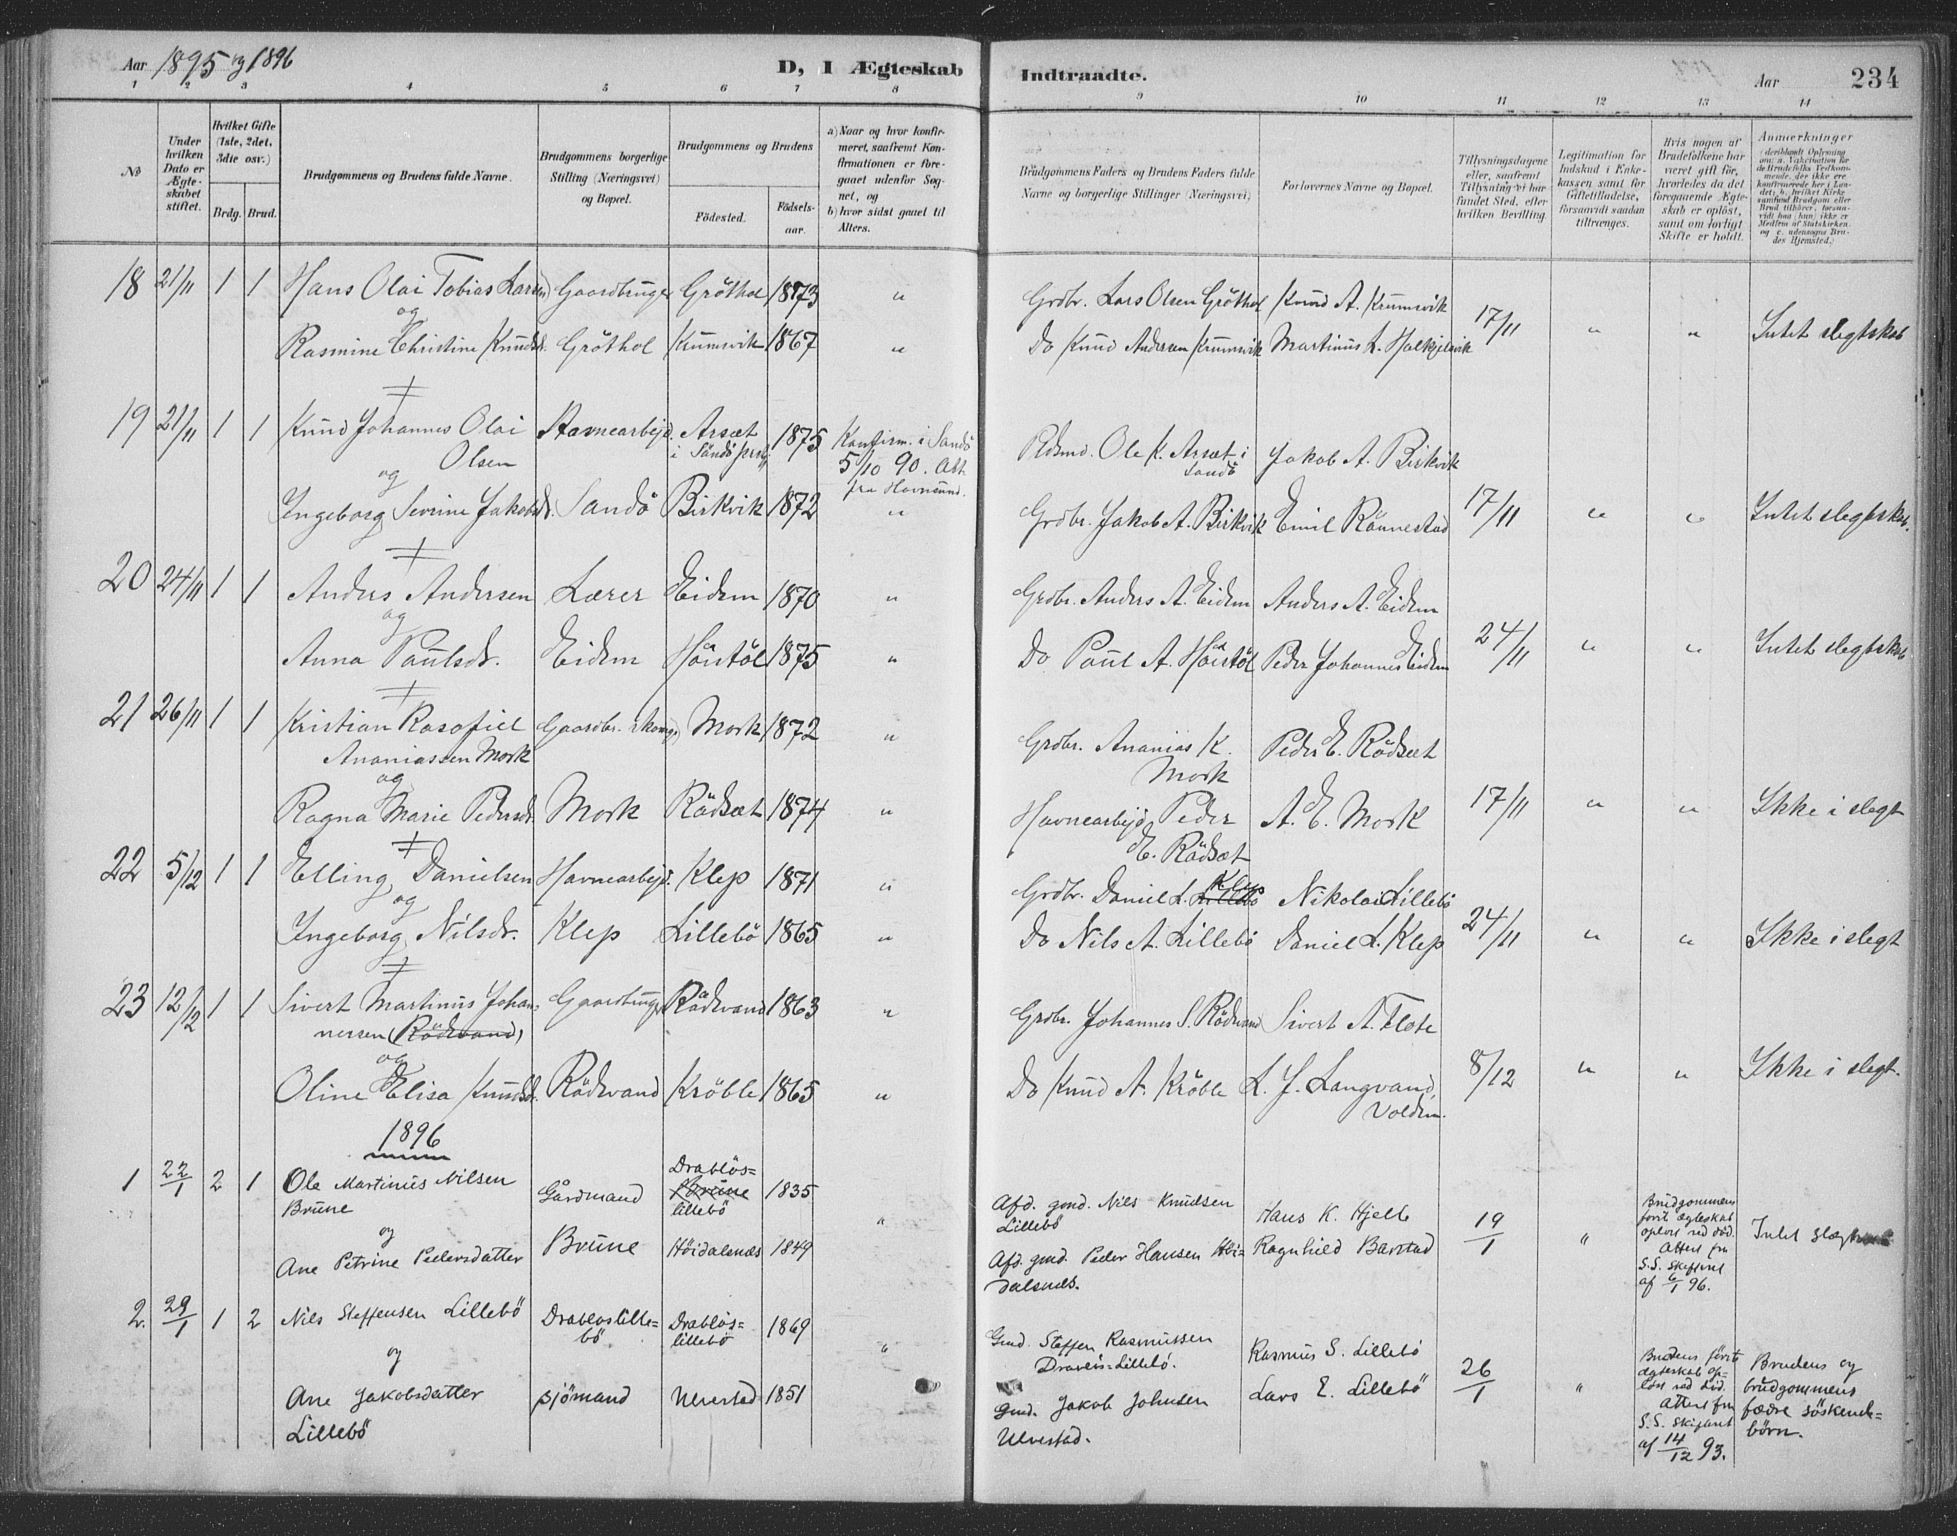 Aar 1895 og 1896
D, I Ægteskab
Indtraadte.
Aar
234
1 2 3 4 5 6 7 8
9 10 11 12 13 14
No
Under hvilken Dato er Ægteskabet stiftet.
Hvilket Gifte (1ste, 2det, 3die osv.)
Brdg. Brud.
Brudgommens og Brudens fulde Navne.
Brudgommens borgerlige Stilling (Næringsvei) og Bopæl.
Brudgommens og Brudens
Födested.
Födselsaar.
a) Naar og hvor konfirmeret, saafremt Konfirmationen er foregaaet udenfor Sognet, og
b) hvor sidst gaaet til Alters.
Brudgommens Faders og Brudens Faders fulde Navne og borgerlige Stillinger (Næringsvei)
Forlovernes Navne og Bopæl.
Tillysningsdagene eller, saafremt Tillysning ei har fundet Sted, efter hvilken Bevilling.
Legitimation for Indskud i Enkekassen samt for Giftetilladelse, forsaavidt saadan tiltrænges.
Hvis nogen af Brudefolkene har været gift før, hvorledes da det foregaaende Ægteskab er opløst, samt om lovligt Skifte er holdt.
Anmærkninger
18 21/11 1 1 Hans Olai Tobias Larsen Gaardbruger Gröthol 1873 " Grdbr. Lars Olsen Gröthol Knud A. Krumsvik
og
Rasmine Christine Knudsd. Gröthol Krumsvik 1867 " Do Knud Andersen Krumsvik Martinus L. 17/11 " " Intet slegtskab
19 21/11 1 1 Knud Johannes Olai Havnearbejd. Arsæt 1875 Konfirm. i Sandö Ole K. Arsæt i Jakob A. Birkvik
Olsen i Sandö 5/10 90. Att. Sandö
og fra
Ingeborg Severine Jakobsd. Sandö Birkvik 1872 " Grdbr. Jakob A. Birkvik Emil Rönnestad 17/11 " " Intet slegtskab.
20 24/11 1 1 Anders Andersen Lærer Eidem 1870 " Grdbr. Anders A. Eidem Anders A. Eidem
og
Anna Paulsdr. Eidem 1875 " Do Paul A. Peder Johannes Eidem 24/11 " " Intet slegtskab
21 26/11 1 1 Kristian Rasofiel Gaardbr. Mork 1872 " Grdbr. Ananias K. Peder E. Rödsæt
Ananiassen Mork Mork
og
Ragna Marie Pedersd. Mork Rödsæt 1874 " Havnearbejd. Peder A. E. Mork 17/11 " " Ikke i slegt
E. Rödsæt
22 5/12 1 1 Elling Danielsen Havnearbejd. Klep 1871 " Grdbr. Daniel L. Klep Nikolai Lillebö
og
Ingeborg Nilsdr. Klep Lillebö 1865 " Do Nils A. Lillebö Daniel L. Klep 24/11 " " Ikke i slegt
23 12/12 1 1 Sivert Martinus Johan- Gaardbruger Rödvand 1863 " Grdbr. Johannes S. Rödvand Sivert A. Flote
nessen (Rödvand)
og
Oline Elisa Knudsd. Rödvand Kröble 1865 " Do Knud A. Kröble L. J. Langvand, 8/12 " " Ikke i slegt.
Volden.
1896
1 22/1 2 1 Ole Martinus Nilsen Gårdmand Drabløs= 1835 Afd. gmd. Nils Knudsen Hans K. Hjelle 19/1 Brudgommens
Brune Brune Lillebö forit ægteskab
lillebö opløst ved död.
og Attest fra
Ane Petrine Pedersdatter Brune Höidalsnæs 1849 " Afd. gmd. Peder Hansen Höi- Ragnhild Barstad " S.S. skifteret Intet slægtskab
dalsnæs. af 6/1 96.
2. 29/1 1 2 Nils Steffensen Lillebö Drabløslille= Drabløs= 1869 Gmd. Steffen Rasmussen Rasmus S. Lillebö 26/1
bö lillebö " Lillebö.
og
Ane Jakobsdatter sjömand Ulvestad 1851 Gmd. Jakob Johnsen Lars E. Lillebö "
Lillebö Ulvestad.
Brudens förste
ægteskab op-
løst ved död.
Attest fra
S.S. skifteret
af 14/12 93.
Brudens og
brudgommens
fædre söskende=
börn.